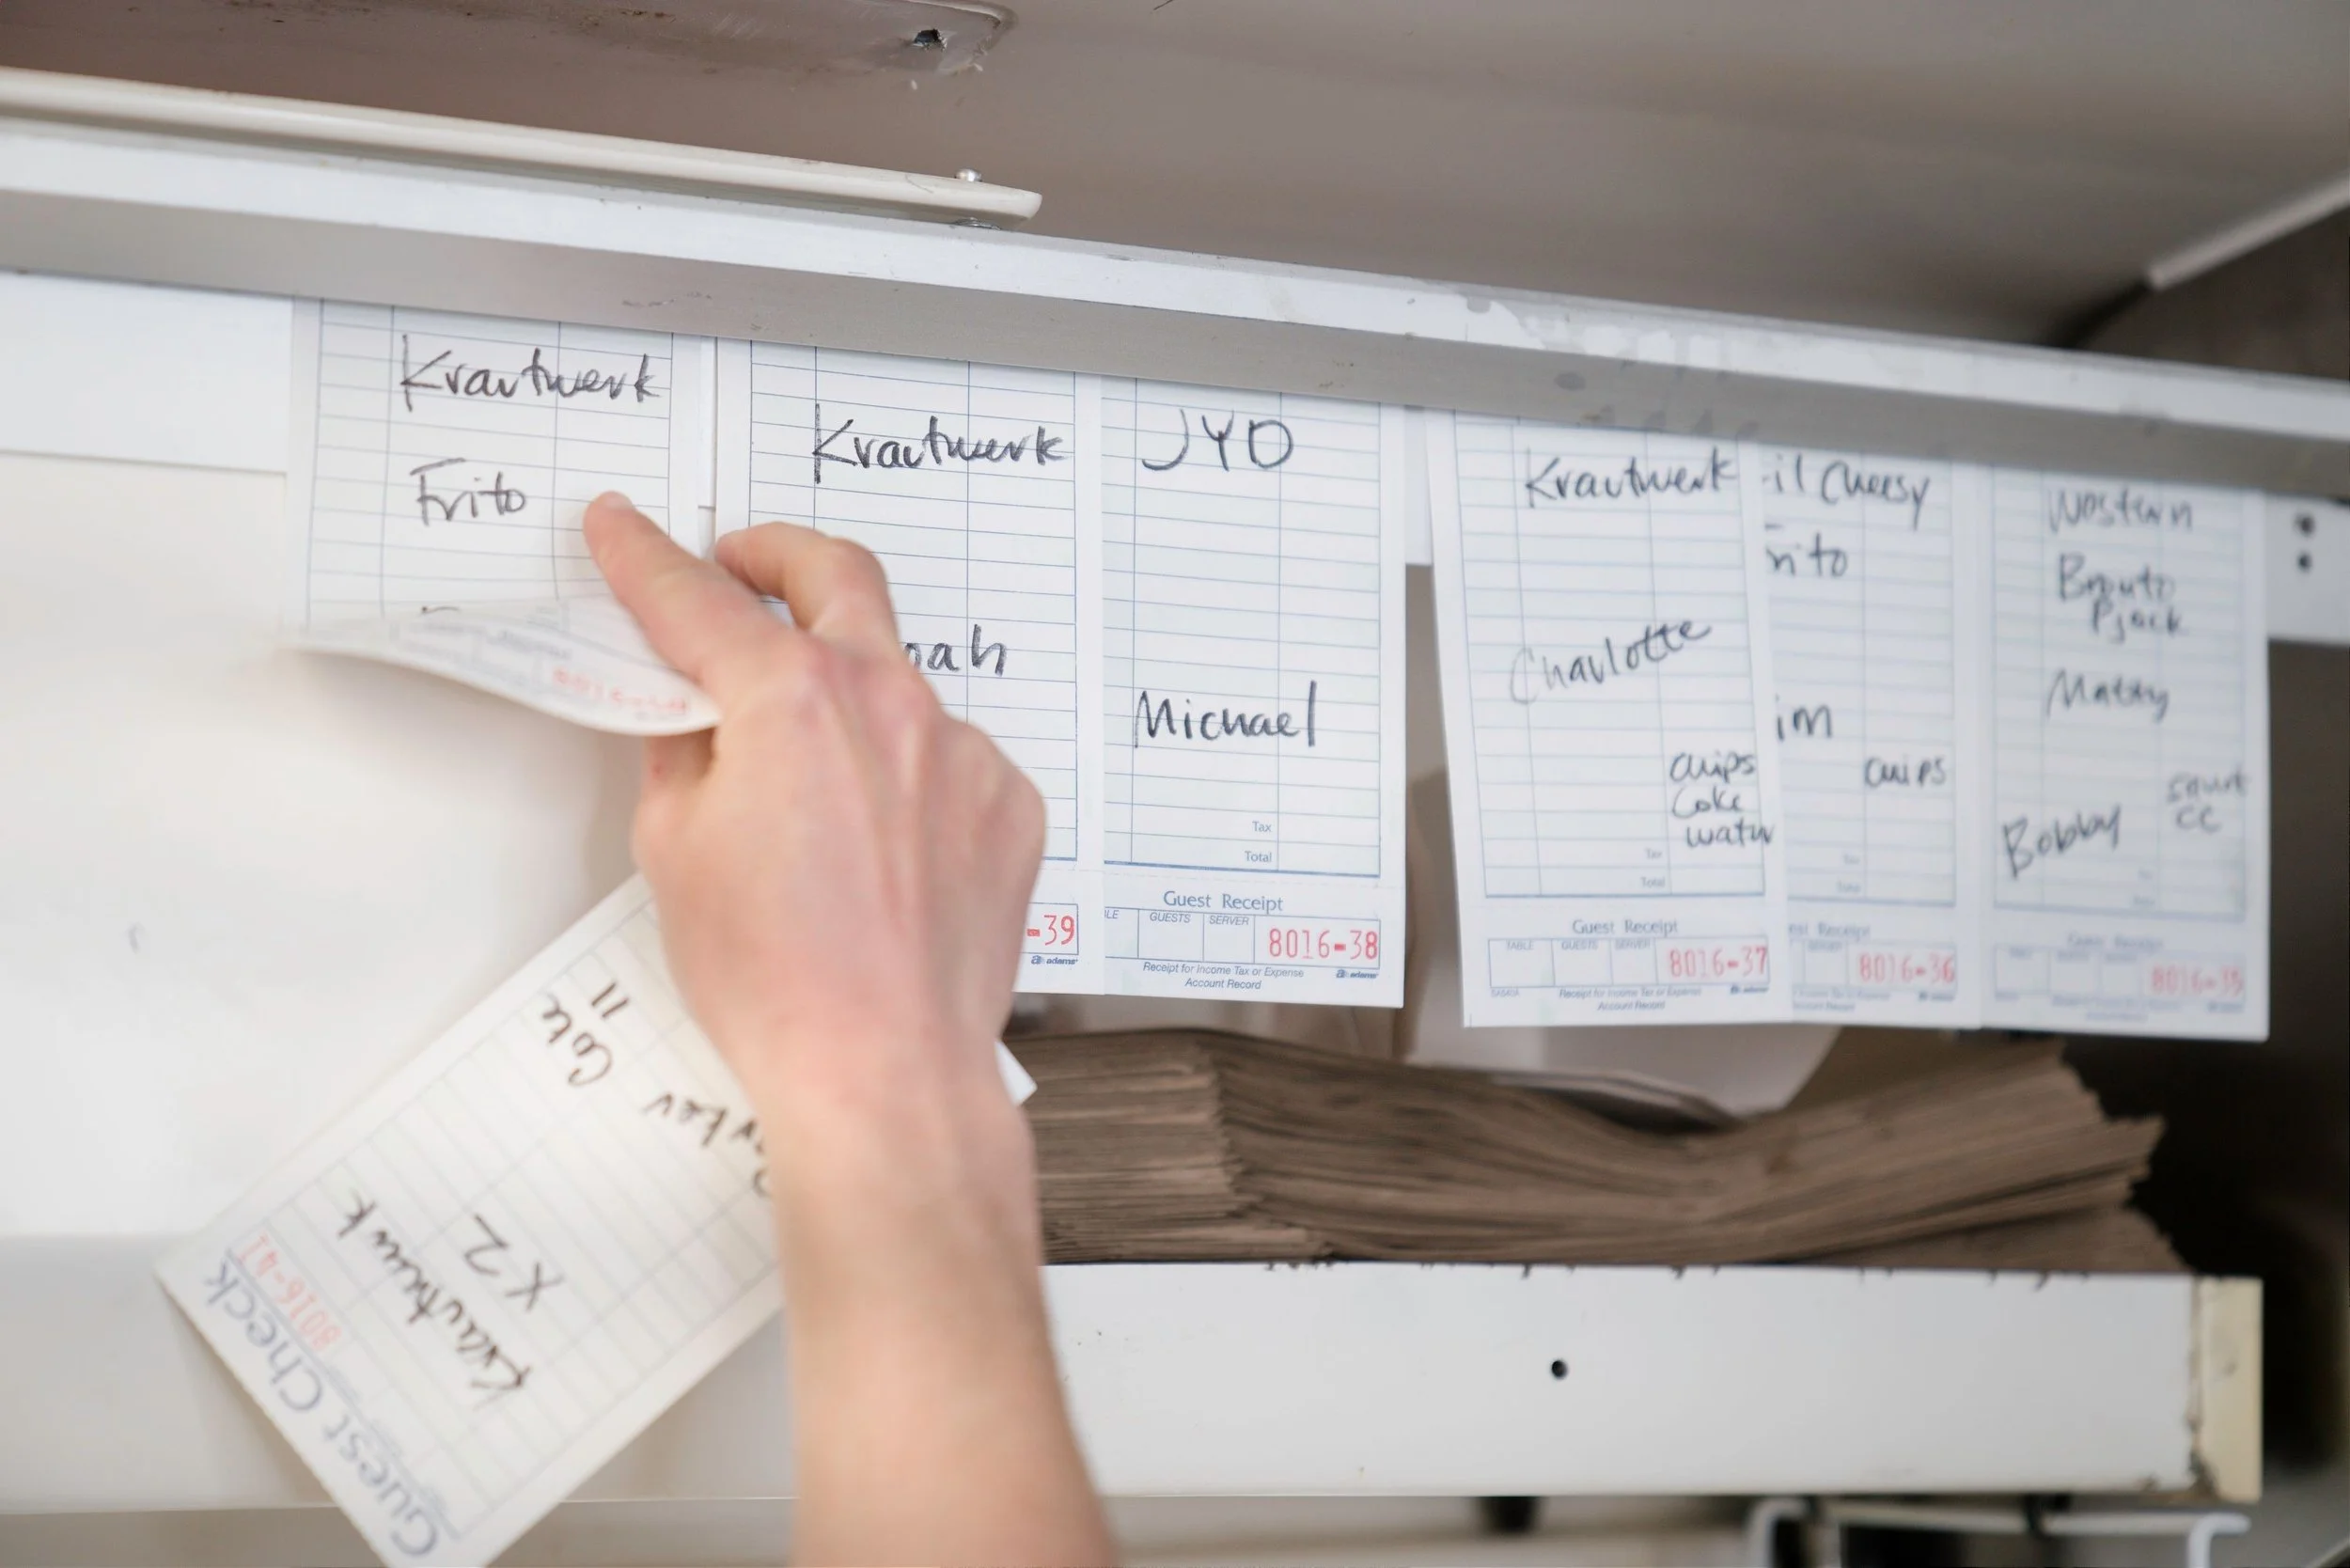 Krautwerk
Frito
Krautwerk
oah
-39
adams
JYD
Michael
Tax
Total
Guest Receipt
GUESTS SERVER
8016-38
Receipt for Income Tax or Expense
Account Record
adams
Krautwerk
Charlotte
chips
Coke
water
Tax
Total
Guest Receipt
TABLE GUESTS SERVER
8016-37
Receipt for Income Tax or Expense
Account Record
il Cheesy
rito
im
chips
8016-36
Western
Pjack
Matty
Bobby
CC
8016-35
Guest Check
8016-41
Krautwerk
X2
Coke
11